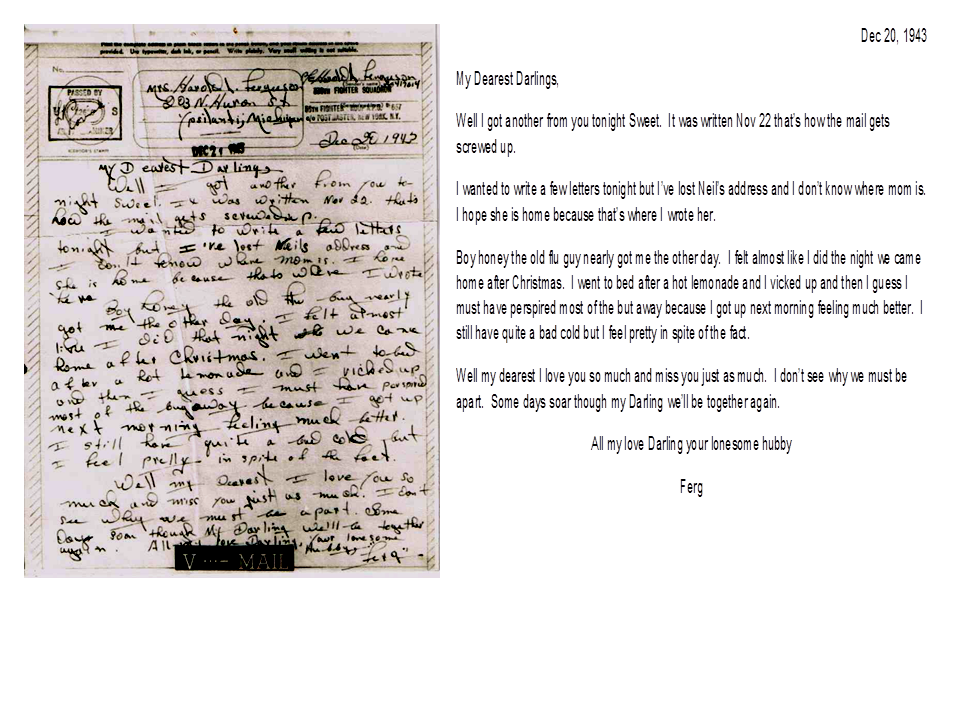 Print the complete address in plain block letters in the panel below, and your return address in the space
provided. Use typewriter, dark ink, or pencil. Write plainly. Very small writing is not suitable.
No.
PASSED BY
U S
ARMY EXAMINER
CENSOR'S STAMP
Mrs. Harold L. Ferguson
223 N. Huron St
Ypsilanti, Michigan
DEC 21 1943
Harold L. Ferguson
(Sender's name)
FIGHTER SQUADRON
FIGHTER
c/o POSTMASTER, NEW YORK, N.Y.
Dec 20, 1943
(Date)
My Dearest Darlings
Well I got another from you to-
night Sweet. It was written Nov 22. thats
how the mail gets screwed up.
I wanted to write a few letters
tonight but I've lost Neils address and
I don't know where mom is. I hope
she is home because thats where I wrote
her.
Boy honey the old flu bug nearly
got me the other day. I felt almost
like I did that night we came
home after Christmas. I went to bed
after a hot lemonade and I vicked up
and then I guess I must have perspired
most of the bug away because I got up
next morning feeling much better.
I still have quite a bad cold but
I feel pretty in spite of the fact.
Well my Dearest I love you so
much and miss you just as much. I don't
see why we must be apart. Some
Day soon though My Darling we'll be together
again. All my love Darling, Your lonesome
Hubby,
"Ferg"
V···– MAIL
Dec 20, 1943
My Dearest Darlings,
Well I got another from you tonight Sweet. It was written Nov 22 that's how the mail gets
screwed up.
I wanted to write a few letters tonight but I've lost Neil's address and I don't know where mom is.
I hope she is home because that's where I wrote her.
Boy honey the old flu guy nearly got me the other day. I felt almost like I did the night we came
home after Christmas. I went to bed after a hot lemonade and I vicked up and then I guess I
must have perspired most of the but away because I got up next morning feeling much better. I
still have quite a bad cold but I feel pretty in spite of the fact.
Well my dearest I love you so much and miss you just as much. I don't see why we must be
apart. Some days soar though my Darling we'll be together again.
All my love Darling your lonesome hubby
Ferg